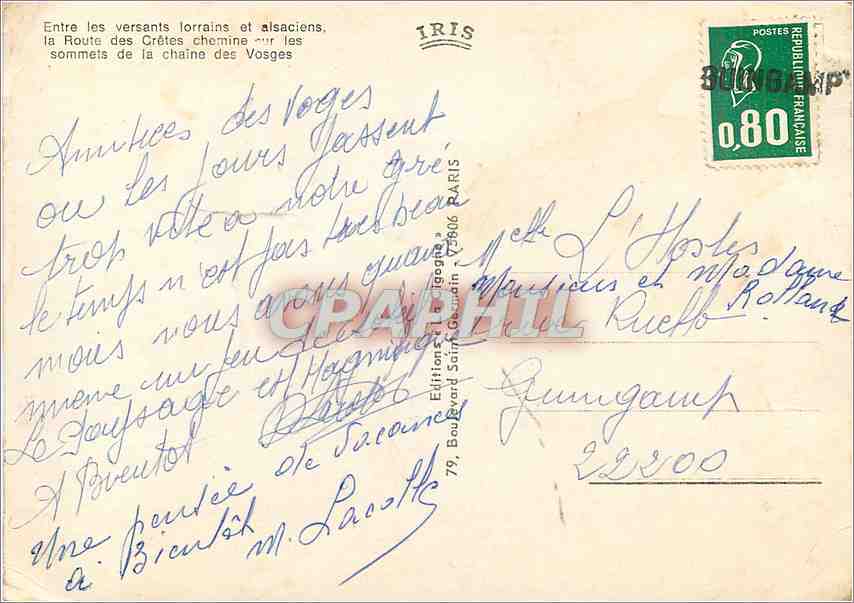 Entre les versants lorrains et alsaciens,
la Route des Crêtes chemine sur les
sommets de la chaîne des Vosges
IRIS
POSTES
REPUBLIQUE FRANÇAISE
0,80
GUINGAMP
Amitiées des Voges
ou les jours passent
trop vite a notre gré
le temps n'est pas tres beau
mais nous avons quand
meme un peu de
Le Paysage est Magnifique
A Bientot
Une pensée de vacances
à Bientôt M. Lacolle
Editions « La Cigogne »
79, Boulevard Saint-Germain - 75006 PARIS
CPAPHIL
Melle L'Hostis
Monsieur et Madame
Rolland
rue Ruello
Guingamp
22200